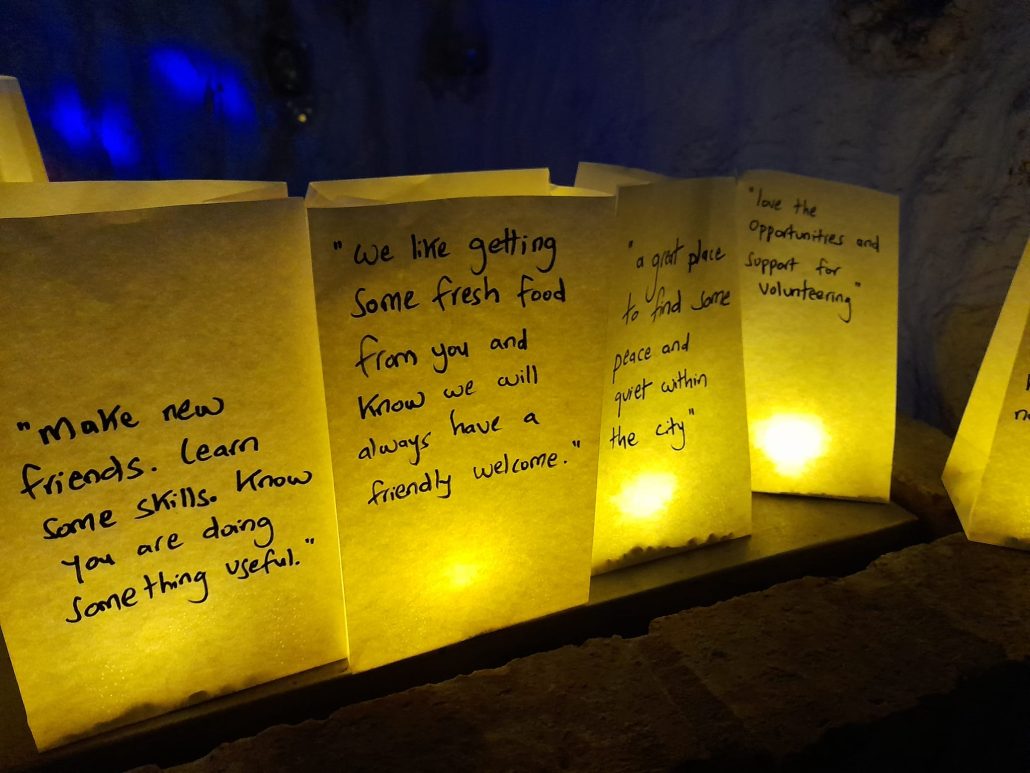 "Make new
friends. Learn
some skills. Know
you are doing
something useful."
"We like getting
some fresh food
from you and
know we will
always have a
friendly welcome."
"a great place
to find some
peace and
quiet within
the city"
"love the
opportunities and
support for
volunteering"